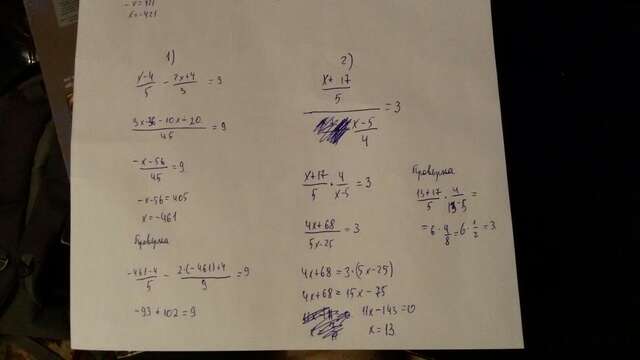 -x=421
x=-421
1)
(x-4)/5 - (2x+4)/3 = 9
(3x-36-10x-20)/45 = 9
(-x-56)/45 = 9
-x-56=405
x=-461
Проверка
(-461-4)/5 - (2·(-461)+4)/9 = 9
-93+102=9
2)
((x+17)/5)/((x-5)/4) = 3
(x+17)/5 · 4/(x-5) = 3
(4x+68)/(5x-25) = 3
4x+68=3·(5x-25)
4x+68=15x-75
11x-143=0
x=13
Проверка
(13+17)/5 · 4/(13-5) =
=6·4/8=6·1/2=3